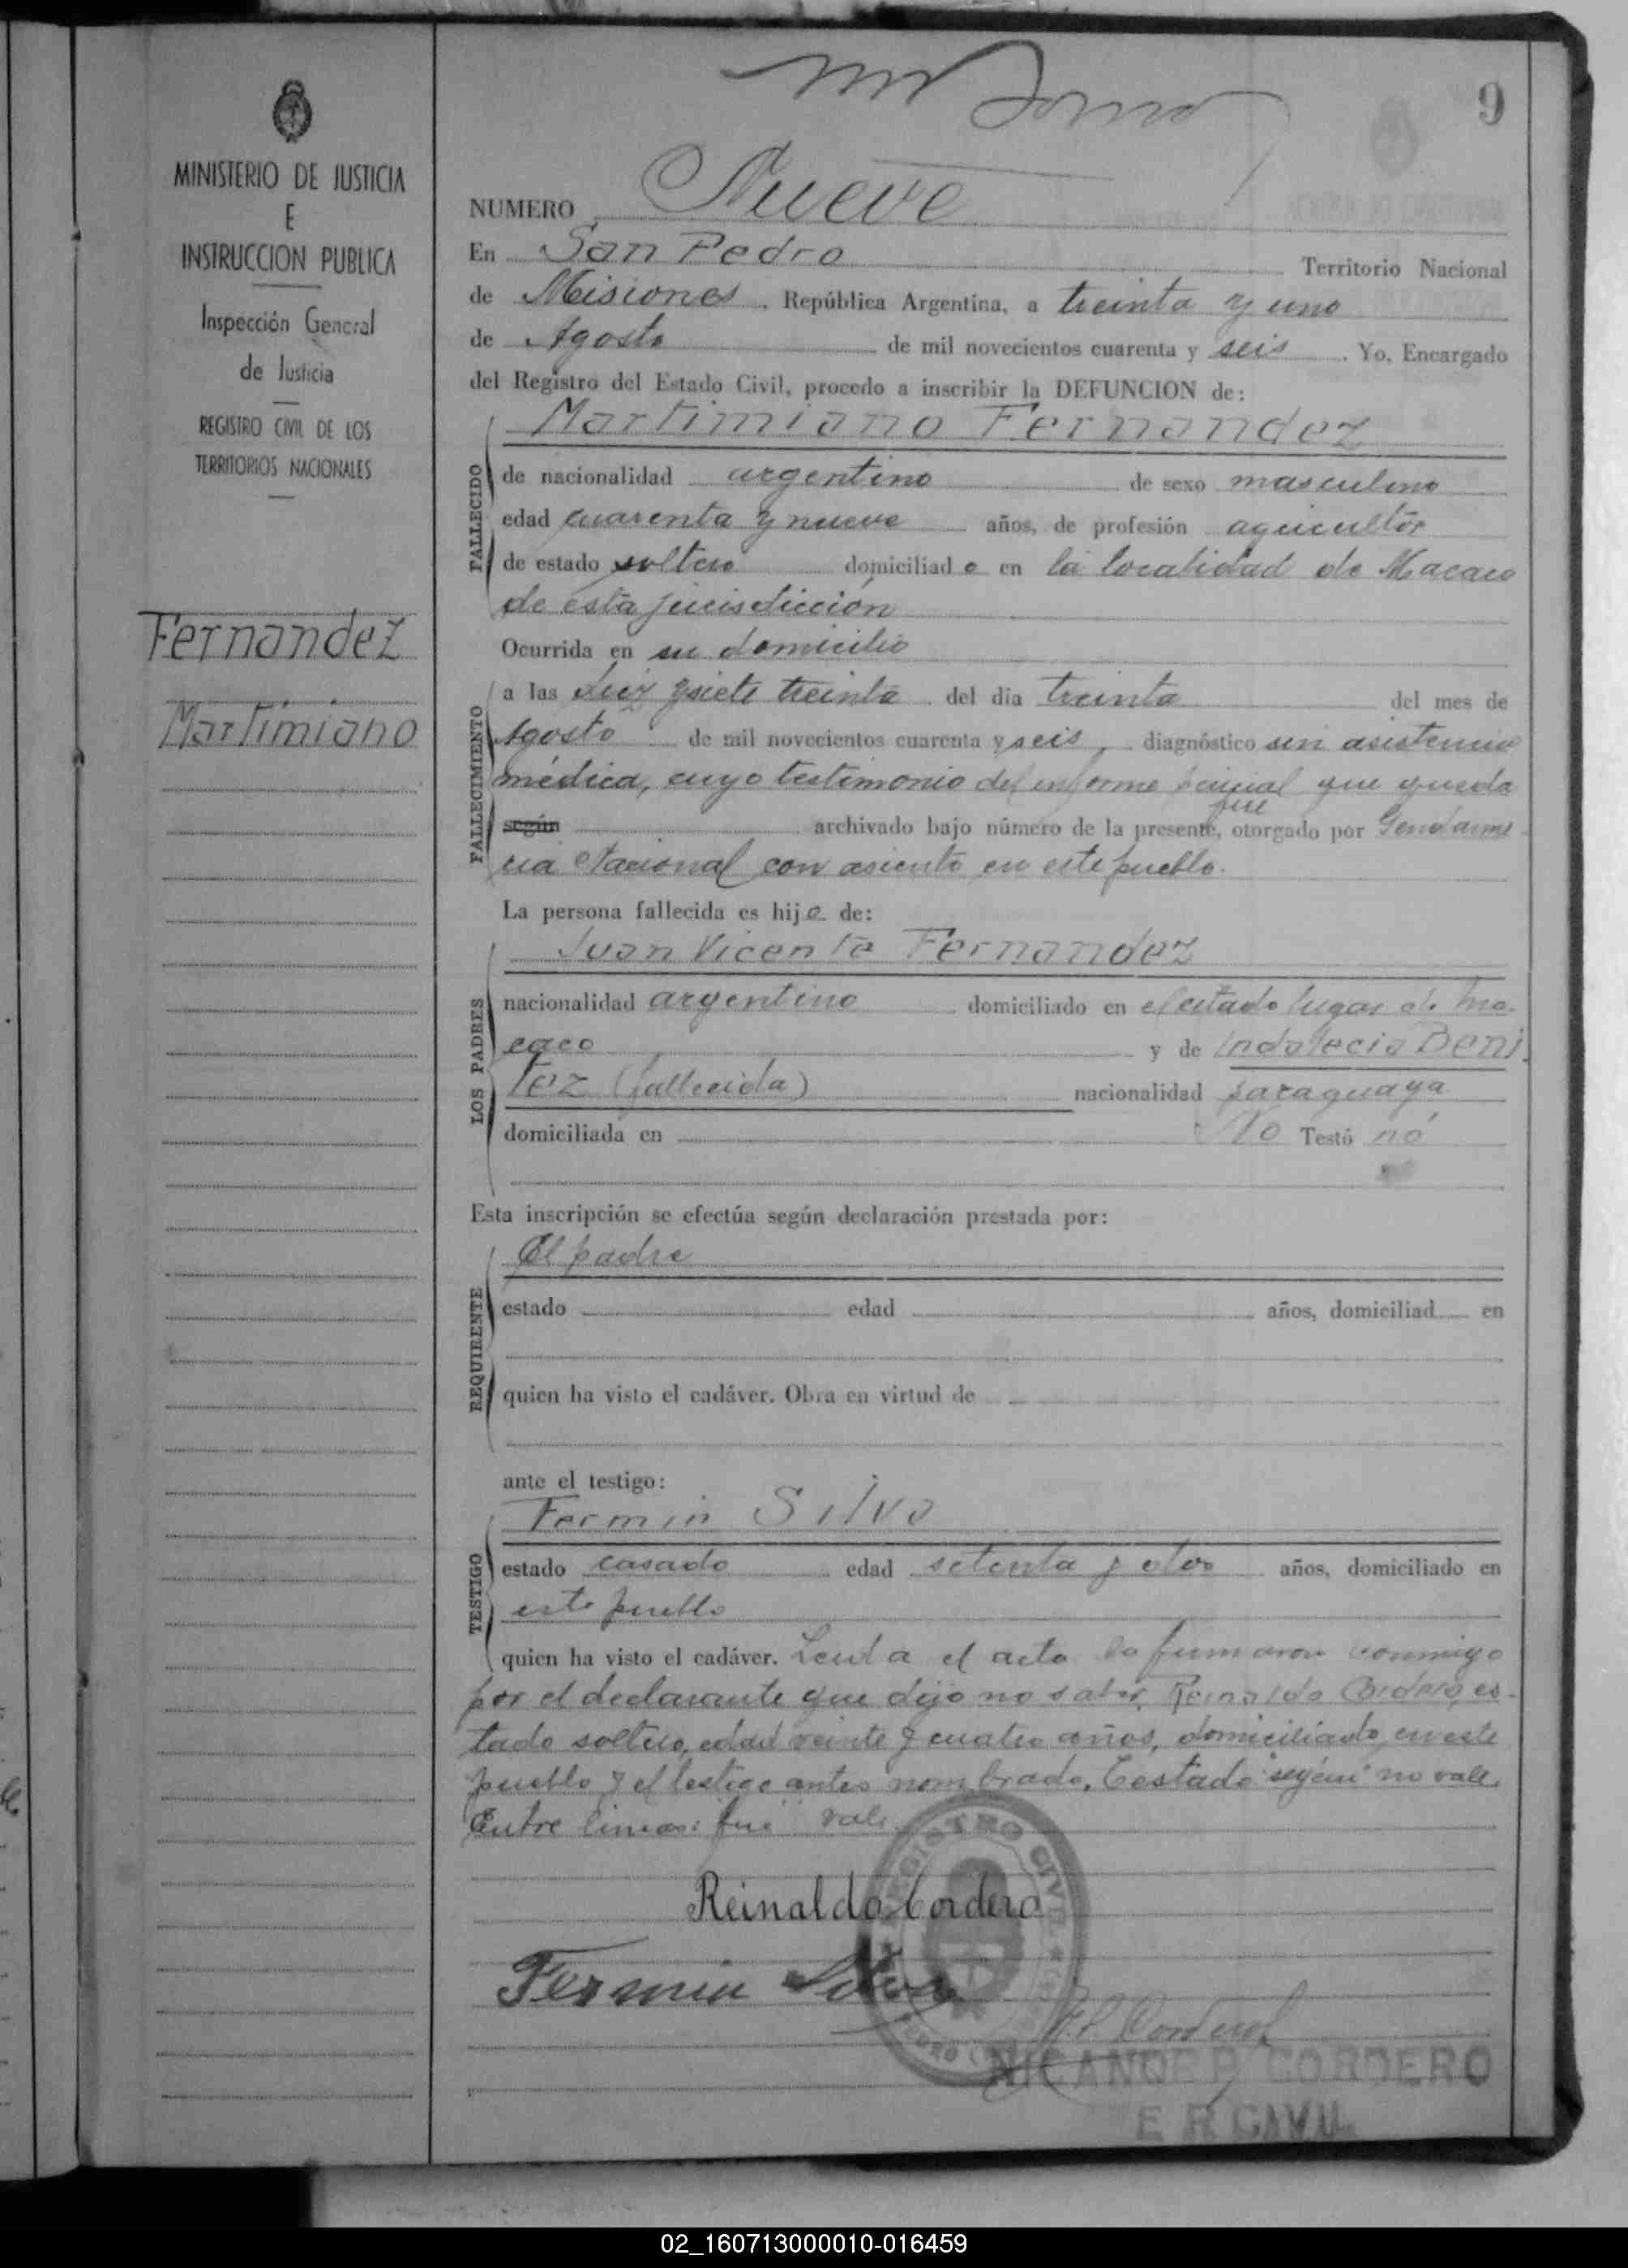 9
MINISTERIO DE JUSTICIA
E
INSTRUCCION PUBLICA
Inspección General
de Justicia
REGISTRO CIVIL DE LOS
TERRITORIOS NACIONALES
Fernandez
Martimiano
NUMERO Nueve
En San Pedro Territorio Nacional
de Misiones, República Argentina, a treinta y uno
de Agosto de mil novecientos cuarenta y seis. Yo, Encargado
del Registro del Estado Civil, procedo a inscribir la DEFUNCION de:
Martimiano Fernandez
FALLECIDO
de nacionalidad argentino de sexo masculino
edad cuarenta y nueve años, de profesión agricultor
de estado soltero domiciliado en la localidad de Macaco
de esta jurisdicción
Ocurrida en su domicilio
FALLECIMIENTO
a las diez y siete treinta del día treinta del mes de
Agosto de mil novecientos cuarenta y seis, diagnóstico sin asistencia
médica, cuyo testimonio del informe que queda
fue
según archivado bajo número de la presente, otorgado por Gendarme
ria Nacional con asiento en este pueblo.
La persona fallecida es hijo de:
Juan Vicente Fernandez
LOS PADRES
nacionalidad argentino domiciliado en el citado lugar de Ma-
caco y de Indalecia Beni
tez (fallecida) nacionalidad paraguaya
domiciliada en No Testó nó
Esta inscripción se efectúa según declaración prestada por:
El padre
REQUIRENTE
estado edad años, domiciliad en
quien ha visto el cadáver. Obra en virtud de
ante el testigo:
Fermin Silva
TESTIGO
estado casado edad setenta y años, domiciliado en
este pueblo
quien ha visto el cadáver. Leida el acta la firmaron conmigo
por el declarante que dijo no saber, Reinaldo Cordero, es-
tado soltero, edad veinte y cuatro años, domiciliado en este
pueblo y el testigo antes nombrado. Testado "según" no vale.
Entre lineas: "fue" vale.
Reinaldo Cordero
Fermin Silva
N.P. Cordero
REGISTRO CIVIL
NICANOR P. CORDERO
E. R. CIVIL
02_160713000010-016459